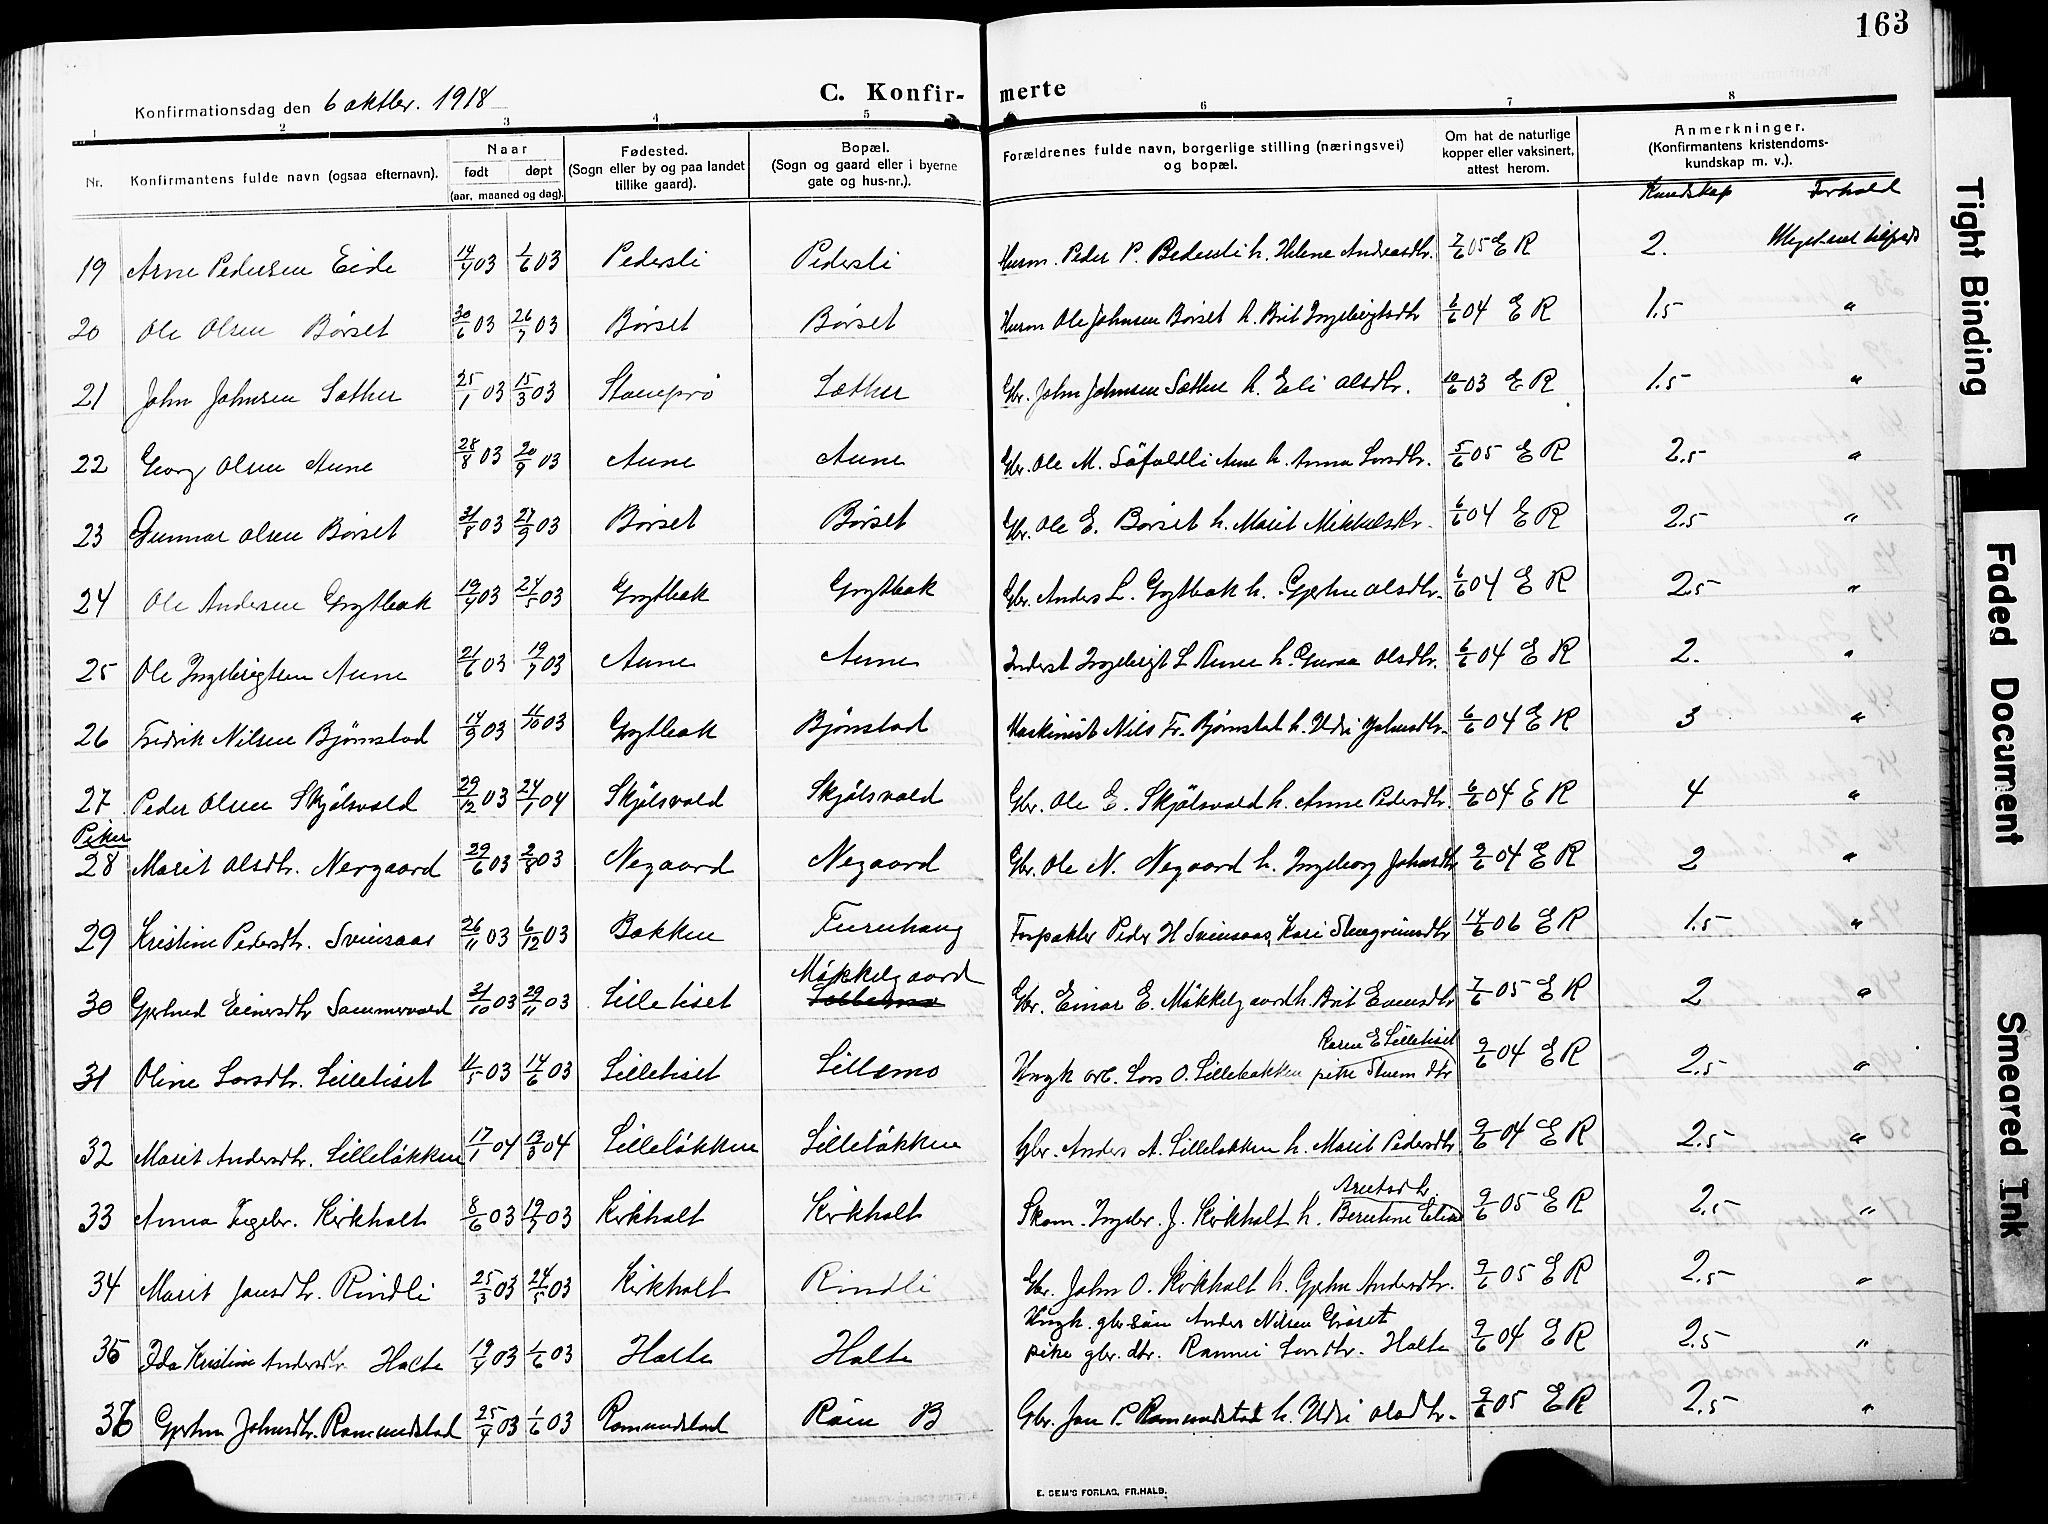 163
Konfirmationsdag den 6 oktbr. 1918
C. Konfir- merte
1 2 3 4 5 6 7 8
Nr. Konfirmantens fulde navn (ogsaa efternavn). Naar født døpt (aar, maaned og dag). Fødested. (Sogn eller by og paa landet tillike gaard). Bopæl. (Sogn og gaard eller i byerne gate og hus-nr.). Forældrenes fulde navn, borgerlige stilling (næringsvei) og bopæl. Om hat de naturlige kopper eller vaksinert, attest herom. Anmerkninger. (Konfirmantens kristendoms- kundskap m. v.).
Kundskap Forhold
19 Arne Pedersen Eide 14/4 03 1/6 03 Pedersli Pedersli Husm. Peder P. Pedersli h. Helene Andreasdtr. 7/6 05 E R 2. Meget tilfreds
20 Ole Olsen Børset 30/6 03 26/7 03 Børset Børset Husm Ole Johnsen Børset h. Brit Ingebrigtsdtr 6/6 04 E R 1.5 "
21 John Johnsen Sæther 25/1 03 15/3 03 Sæther Gbr. John Johnsen Sæther h. Eli Olsdtr. 10/6 03 E R 1.5 "
22 Georg Olsen Aune 28/8 03 20/9 03 Aune Aune Gbr. Ole M. Aune h. Anna Larsdtr. 5/6 05 E R 2.5 "
23 Gunnar Olsen Børset 31/8 03 27/9 03 Børset Børset Gbr. Ole E. Børset h. Marit Mikkelsdtr. 6/6 04 E R 2.5 "
24 Ole Andersen Grytbak 19/4 03 24/5 03 Grytbak Grytbak Gbr. Anders L. Grytbak h. Gjertru Olsdtr. 6/6 04 E R 2.5 "
25 Ole Ingebrigtsen Aune 21/6 03 19/7 03 Aune Aune Inderst Ingebrigt L Aune h. Guroa Olsdtr. 6/6 04 E R 2. "
26 Fredrik Nilsen Bjørnstad 14/9 03 11/10 03 Grytbak Bjørnstad Maskinist Nils Fr. Bjørnstad h. Ildri Johnsdtr. 6/6 04 E R 3 "
27 Peder Olsen Skjølsvold 29/12 03 24/1 04 Skjølsvold Skjølsvold Gbr. Ole E. Skjølsvold h. Anne Pedersdtr. 6/6 04 E R 4 "
Piker
28 Marit Olsdtr. Nergaard 29/6 03 2/8 03 Negaard Negaard Gbr. Ole N. Negaard h. Ingeborg Johnsdtr 9/6 04 E R 2 "
29 Kristine Pedersdtr. Svinsaas 26/11 03 6/12 03 Bakken Furuhaug Forpakter Peder H Svinsaas, Kari 14/6 06 E R 1.5 "
30 Gjertrud Einersdtr Sammervold 31/10 03 29/11 03 Lilletiset Møkkelgaard Gbr. Einar E. Møkkelgaard h. Brit Evensdtr 7/6 05 E R 2 "
31 Oline Larsdtr. Lilletiset 11/5 03 14/6 03 Lilletiset Lillemo Ungk arb. Lars O. Lillebakken pike Karen E Lilletiset 9/6 04 E R 2.5 "
32 Marit Andersdtr. Lilleløkken 17/1 04 13/3 04 Lilleløkken Lilleløkken Gbr. Anders A. Lilleløkken h. Marit Pedersdtr 9/6 04 E R 2.5 "
33 Anna Ingebr. Kirkholt 8/6 03 19/7 03 Kirkholt Kirkholt Skom. Ingebr. J. Kirkholt h. Berntine Arntsdtr. 9/6 05 E R 2.5 "
34 Marit Jonsdtr. Rindli 25/3 03 24/5 03 Kirkholt Rindli Gbr. John O. Kirkholt h. Gjertru Andersdtr. 9/6 05 E R 2.5 "
35 Ida Kristine Andersdtr. Halte 19/4 03 1/6 03 Halte Halte Ungk. gbr søn Anders Nilsen Grøset pike gbr. dtr. Rannei Larsdtr. Halte 9/6 04 E R 2.5 "
36 Gjertru Johnsdtr. Romundstad 25/4 03 1/6 03 Romundstad Røen B Gbr. Jon P. Romundstad h. Ildri Olsdtr. 9/6 05 E R 2.5 "
E. SEM'S FORLAG, FR.HALD.
Tight Binding
Faded Document
Smeared Ink